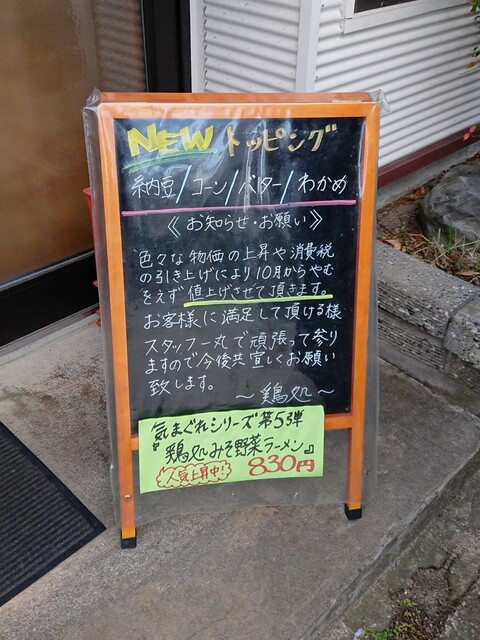 NEW トッピング
納豆/コーン/バター/わかめ
《お知らせ・お願い》
色々な物価の上昇や消費税
の引き上げにより10月からやむ
をえず値上げさせて頂きます。
お客様に満足して頂ける様
スタッフ一丸で頑張って参り
ますので今後共宜しくお願い
致します。
〜鶏処〜
気まぐれシリーズ第5弾
『鶏処みそ野菜ラーメン』
人気上昇中! 830円